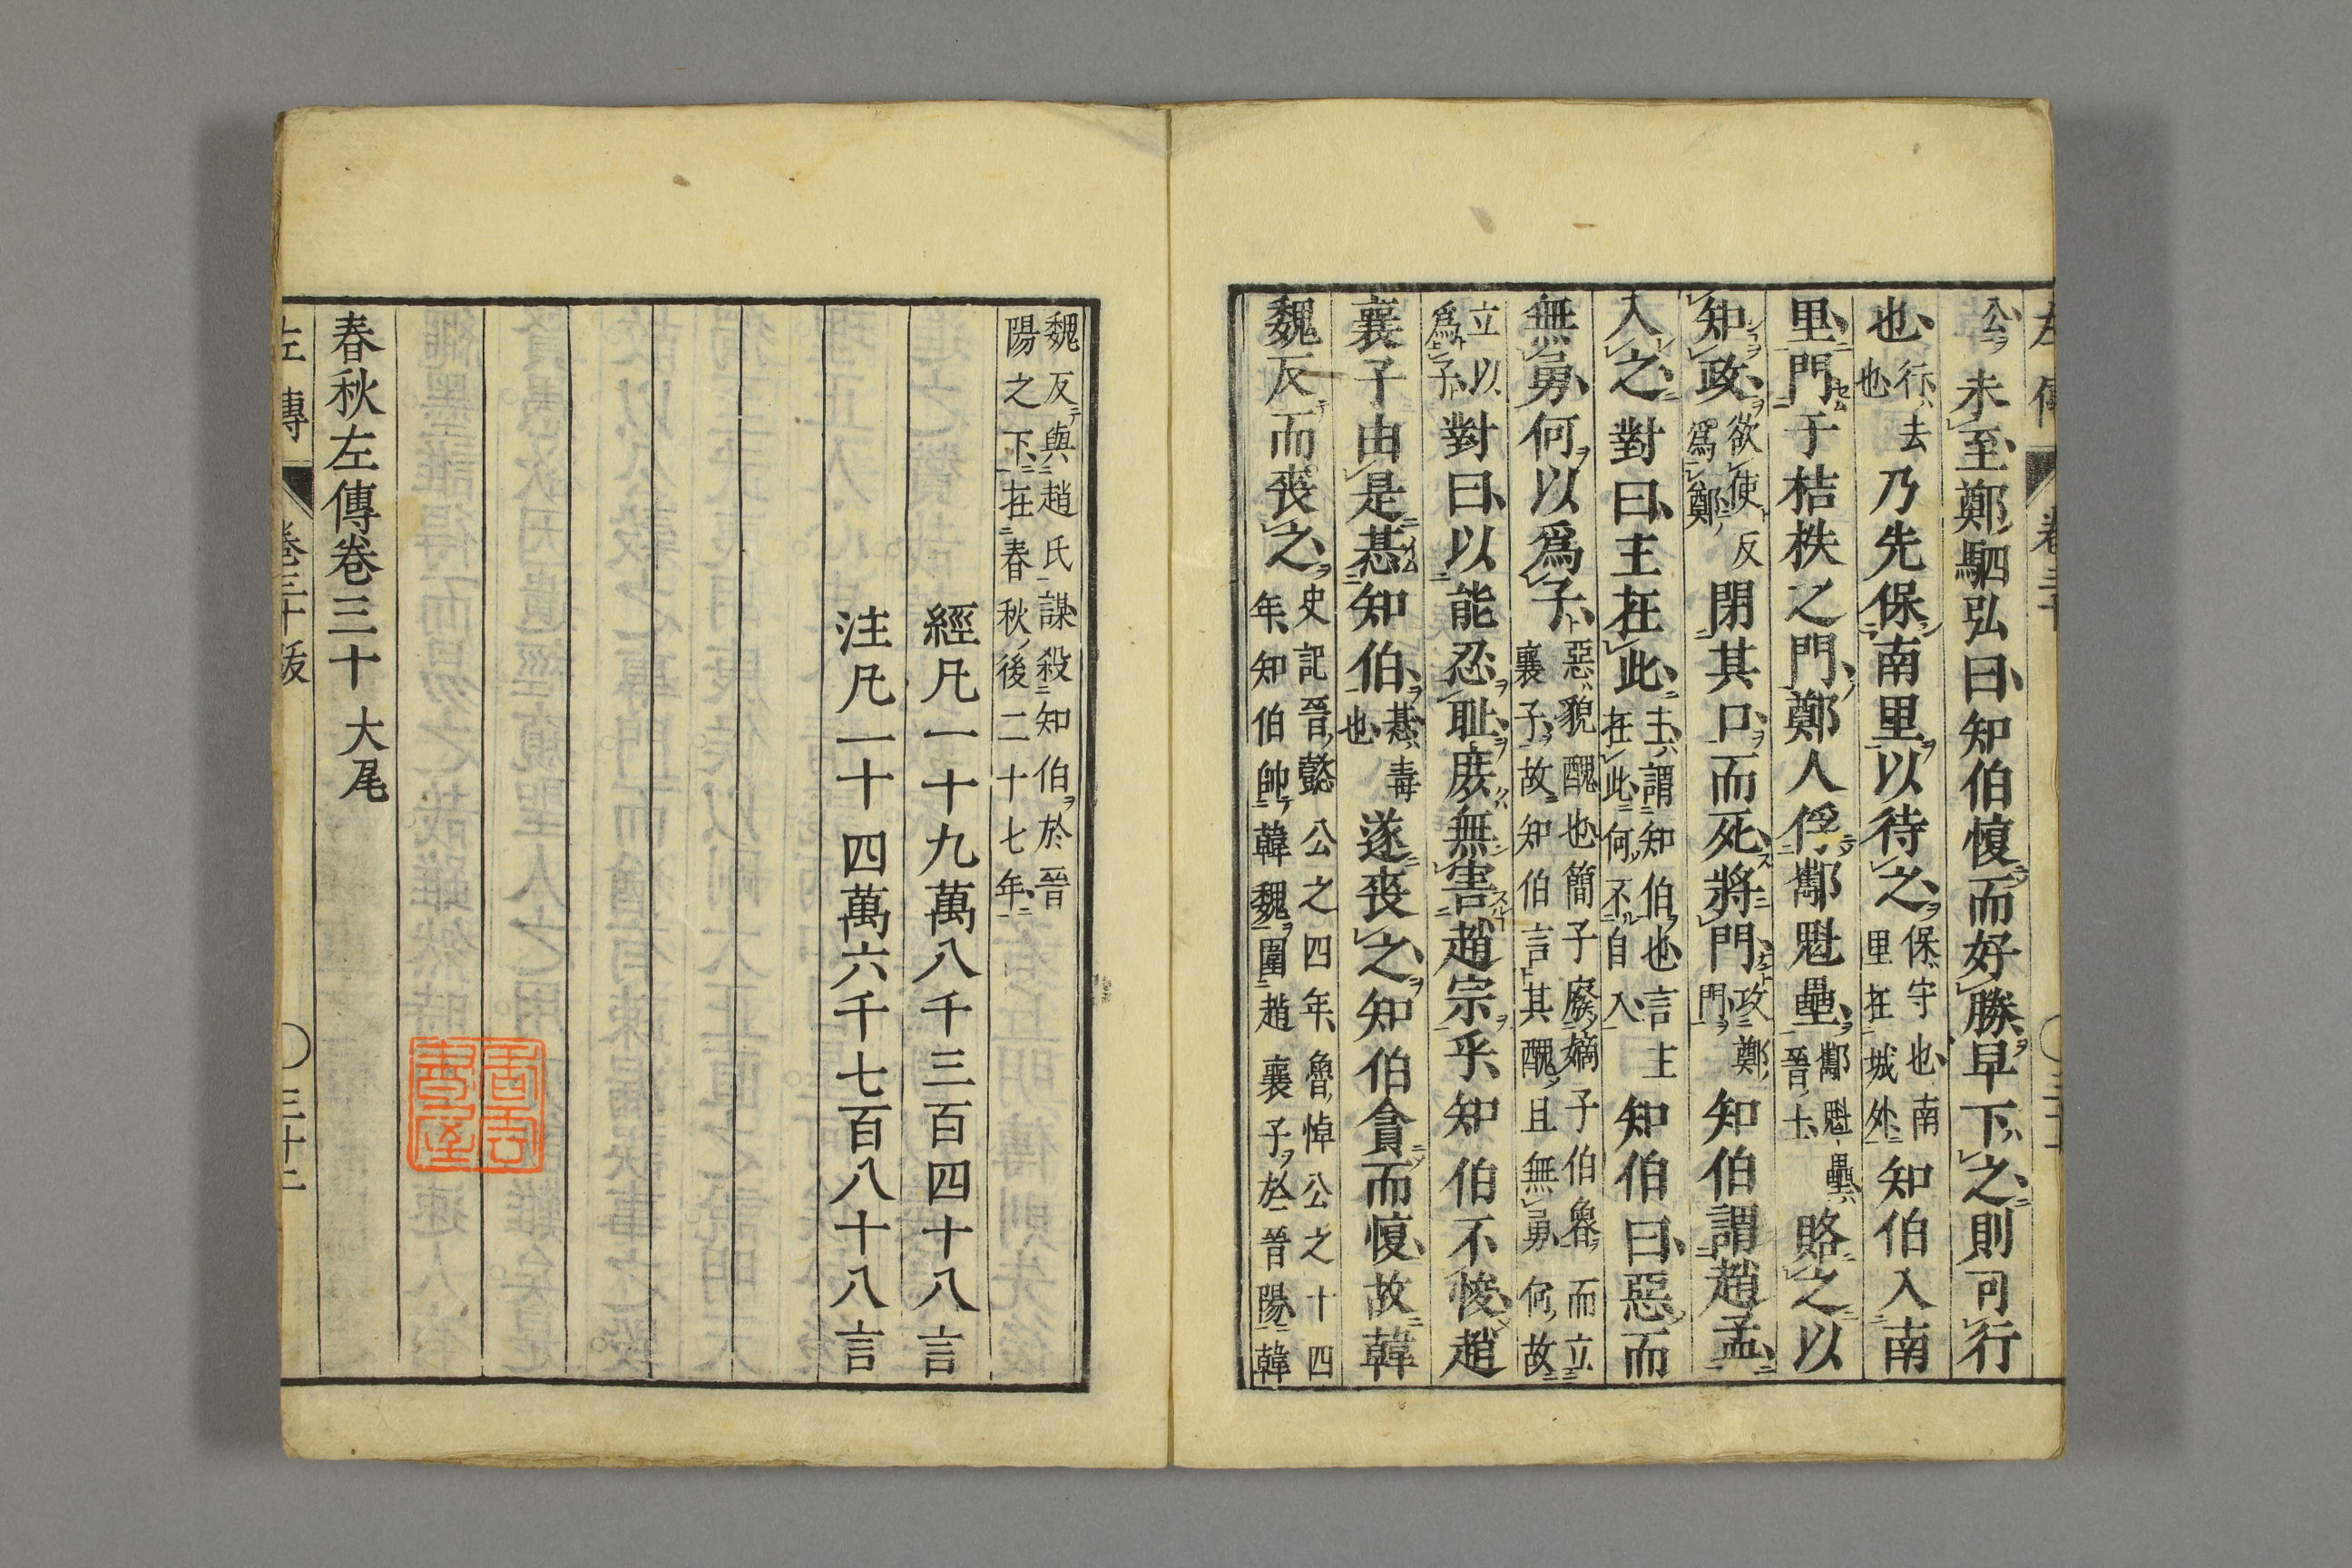 公未至鄭駟弘曰知伯愎而好勝早下之則可行
也行去也乃先保南里以待之保守也南里在城外知伯入南
里門于桔柣之門鄭人俘酅魁壘酅魁壘晉士賂之以
知政欲使反爲鄭閉其口而死將門攻鄭門知伯謂趙孟
入之對曰主在此主謂知伯也言主在此何不自入知伯曰惡而
無勇何以爲子惡貌醜也簡子廢嫡子伯魯而立襄子故知伯言其醜且無勇何故
立以爲子對曰以能忍耻庶無害趙宗乎知伯不悛趙
襄子由是惎知伯惎毒也遂喪之知伯貪而愎故韓
魏反而喪之史記晉懿公之四年魯悼公之十四年知伯帥韓魏圍趙襄子於晉陽韓
魏反與趙氏謀殺知伯於晉陽之下在春秋後二十七年
經凡一十九萬八千三百四十八言
注凡一十四萬六千七百八十八言
春秋左傳卷三十 大尾
左傳 卷三十 跋 三十二
香雲書屋